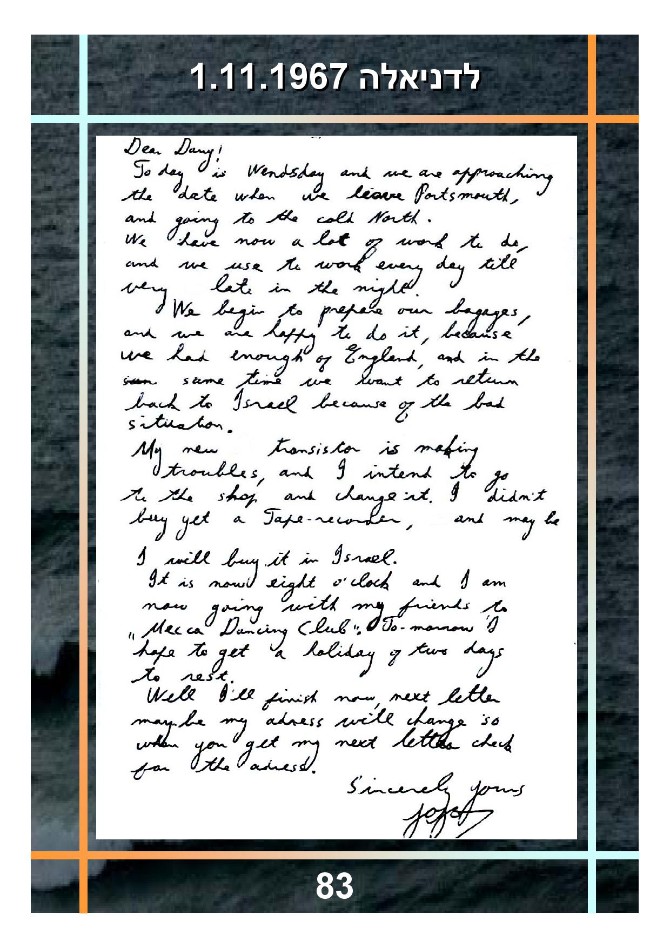 לדניאלה 1.11.1967
Dear Dany!
To day is Wendsday and we are approaching
the date when we leave Portsmouth,
and going to the cold North.
We have now a lot of work to do,
and we use to work every day till
very late in the night.
We begin to prepare our bagages,
and we are happy to do it, because
we had enough of England, and in the
same time we want to return
back to Israel because of the bad
situation.
My new transistor is making
troubles, and I intend to go
to the shop and change it. I didn't
buy yet a Tape-recorder, and may be
I will buy it in Israel.
It is now eight o'clock and I am
now going with my friends to
„Mecca Dancing Club". To-morrow I
hope to get a holiday of two days
to rest.
Well I'll finish now, next letter
may be my adress will change so
when you get my next letter check
for the adress.
Sincerely yours
83